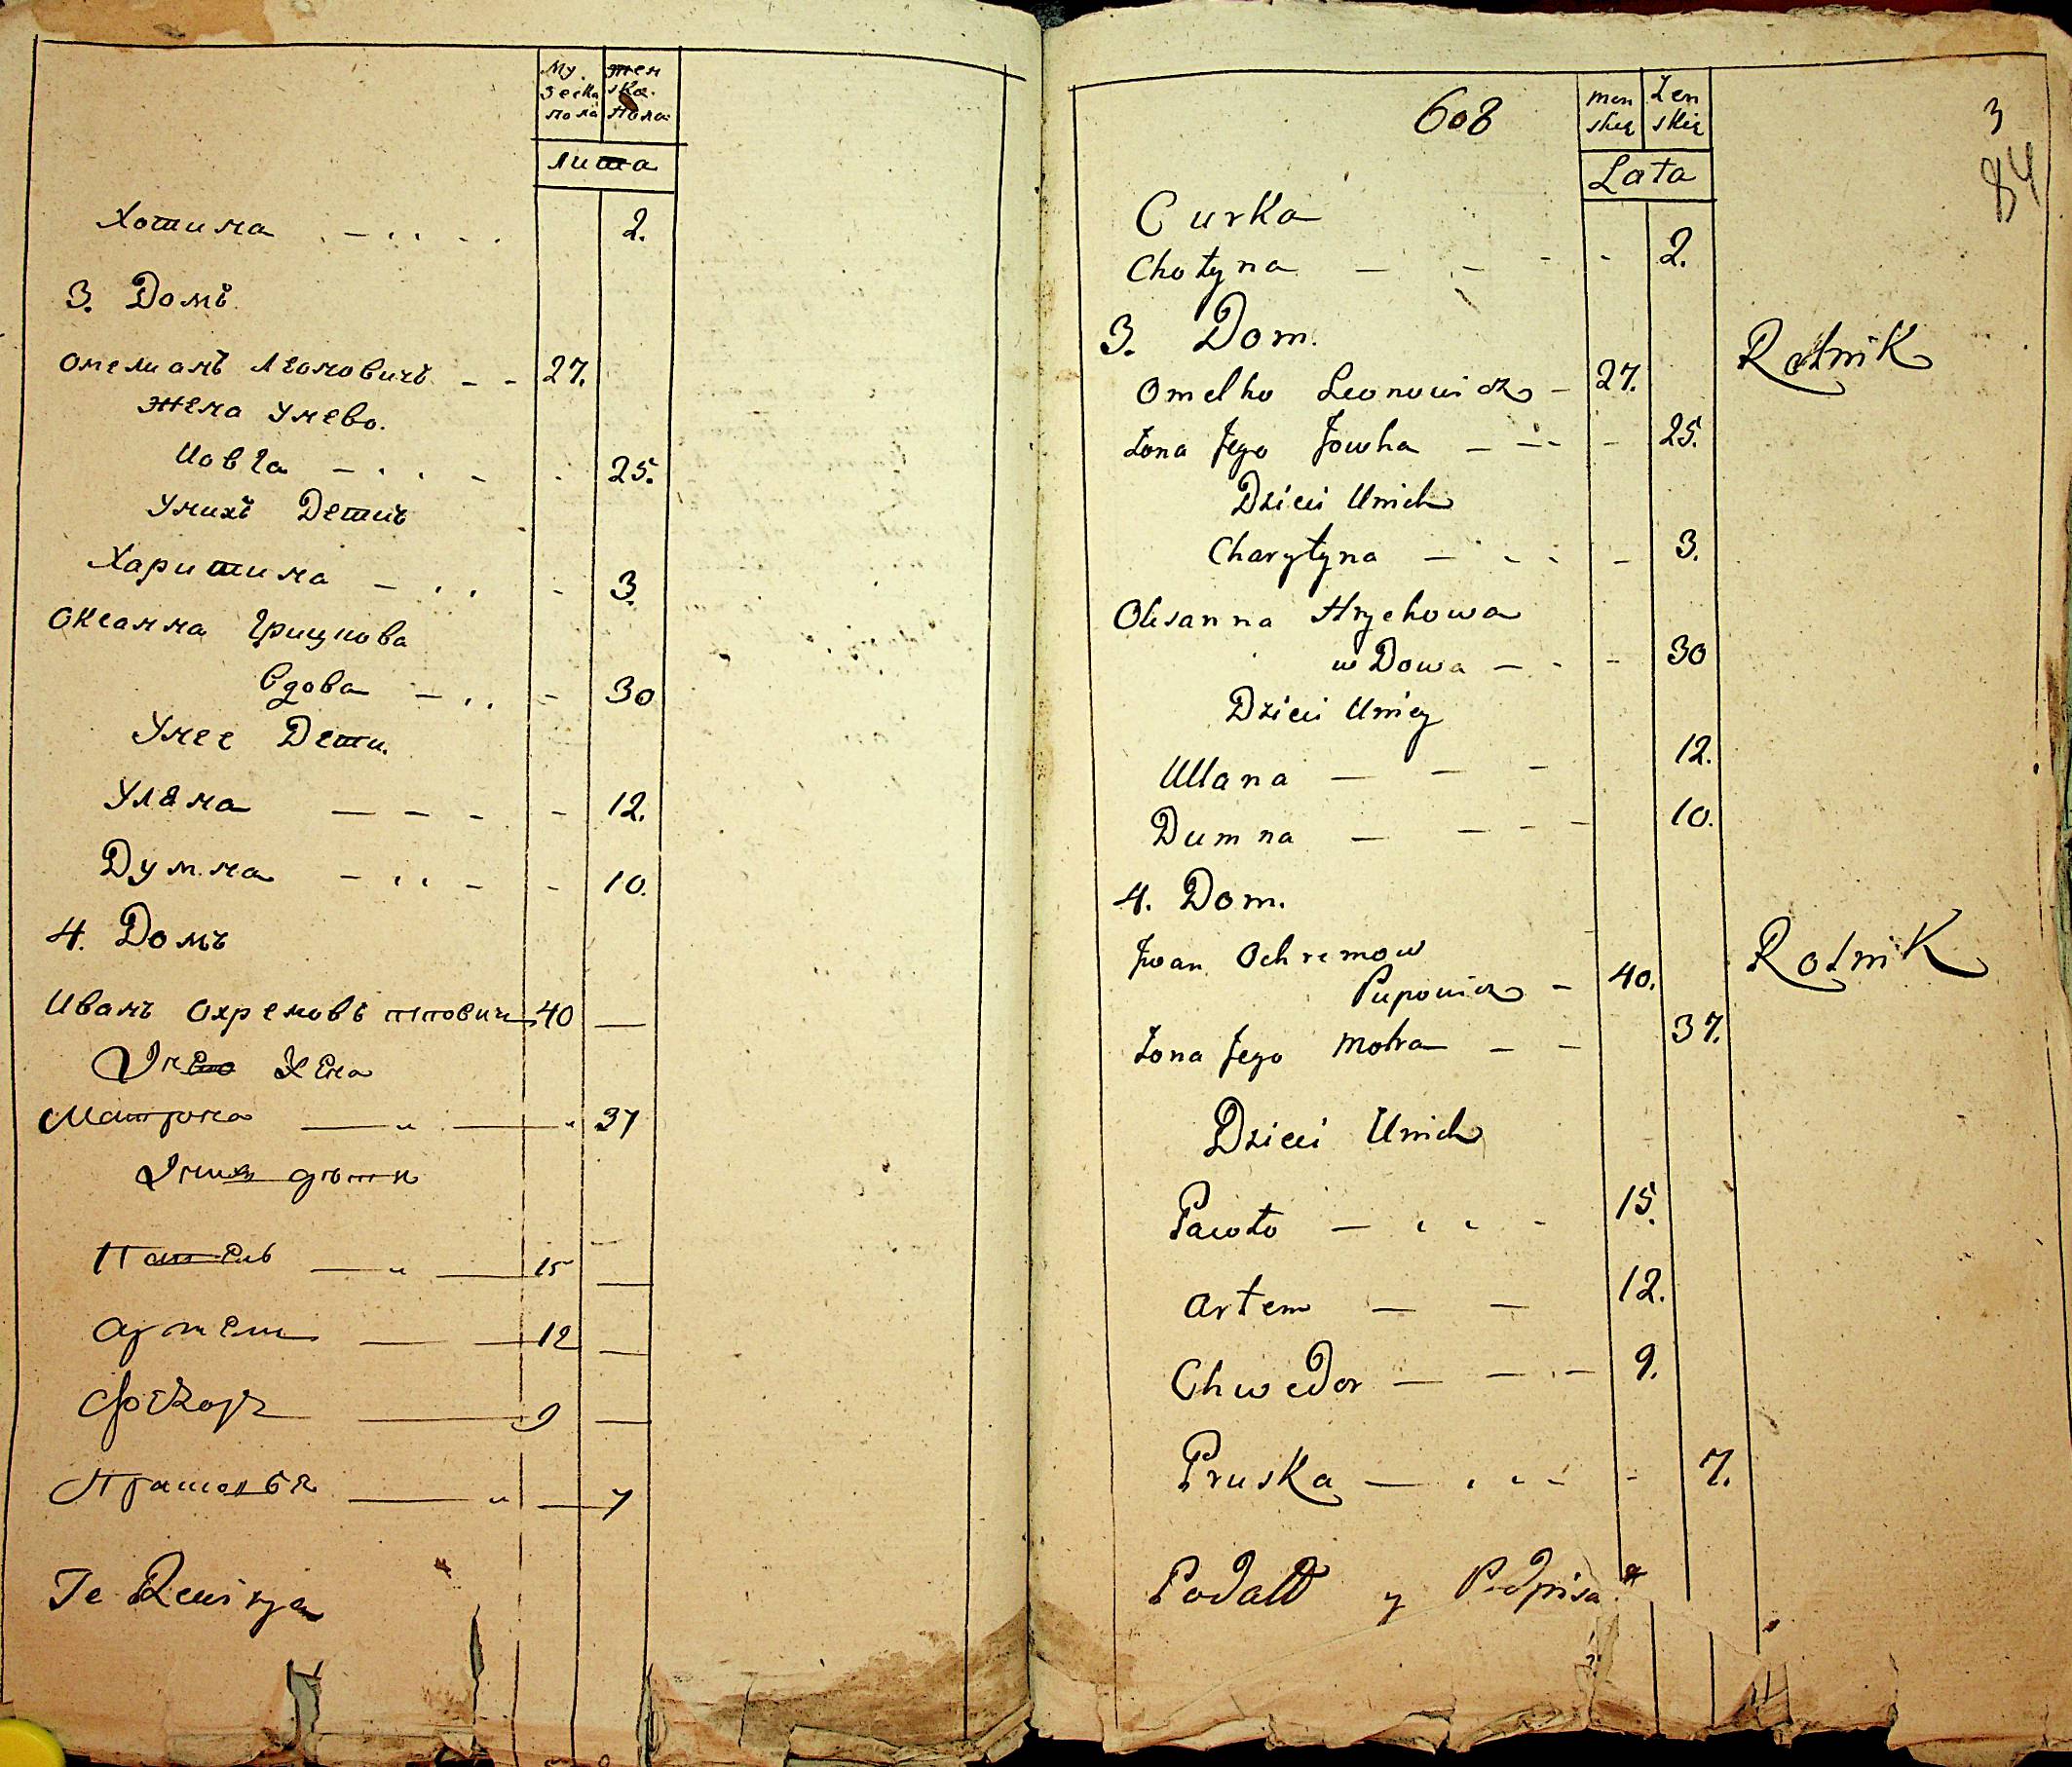 Му зеска пола
Жен ска. Пола
Лита
Хотина 2.
3. Домъ
Омелианъ Леоновичъ 27.
Жена Унево.
Иовга 25.
Унихъ Детиъ
Харитина 3.
Оксанна Грицкова
Вдова 30
Унее Дети.
Уляна 12.
Думна 10.
4. Домъ
Иванъ Охремовъ 40
Унево жена
Матрона 37
Унихъ дѣти
15
Артем 12
Федоръ 9
Прасковья 7
Te Rewizya
608
men skie
Żen skie
3
84
Lata
Curka
Chotyna 2.
3. Dom.
Omelko Leonowicz 27. Rolnik
Żona Jego Jowha 25.
Dzieci Unich
Charytyna 3.
Oksanna Hrychowa
wDowa 30
Dzieci Uniey
Ullana 12.
Dumna 10.
4. Dom.
Jwan Ochremow
Pupowicz 40. Rolnik
Żona Jego Motra 37.
Dzieci Unich
Pawło 15.
Artem 12.
ChweDor 9.
Pruska 7.
Podałł y Podpisa